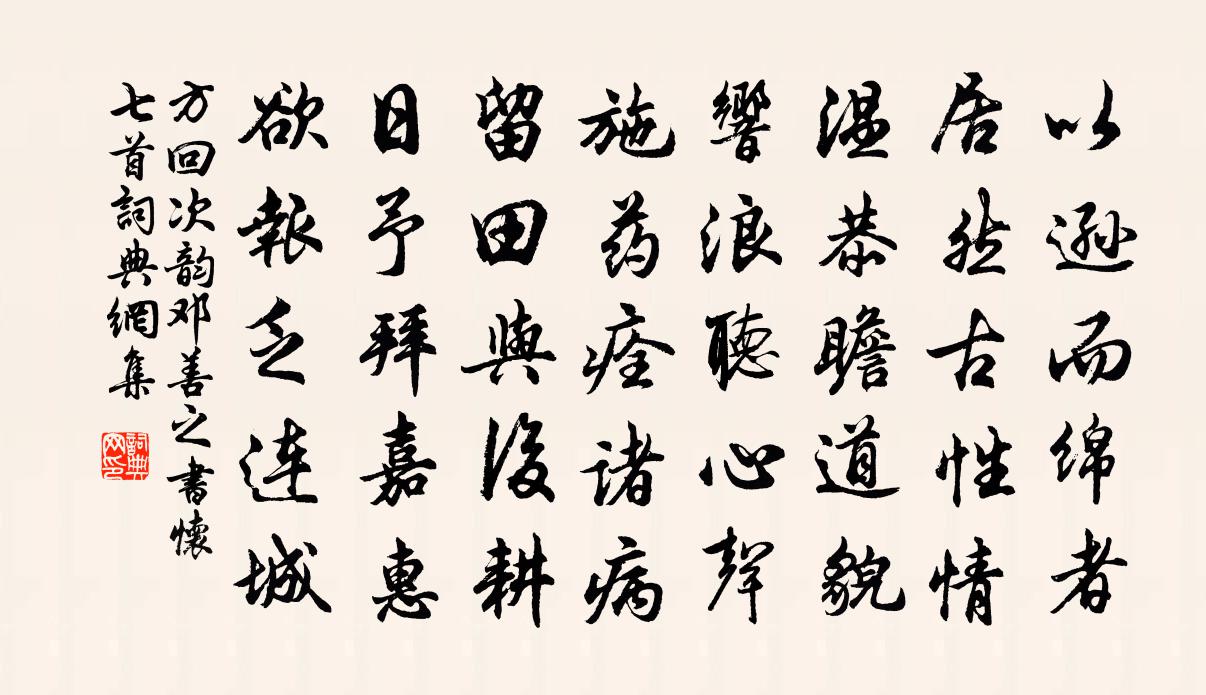 以逊而绵者
居然古性情
温恭瞻道貌
響浪聽心聲
施药痊诸病
留田與後耕
日予拜嘉惠
欲報乏连城
方回次韵邓善之書懷
七首詞典網集
詞典网印